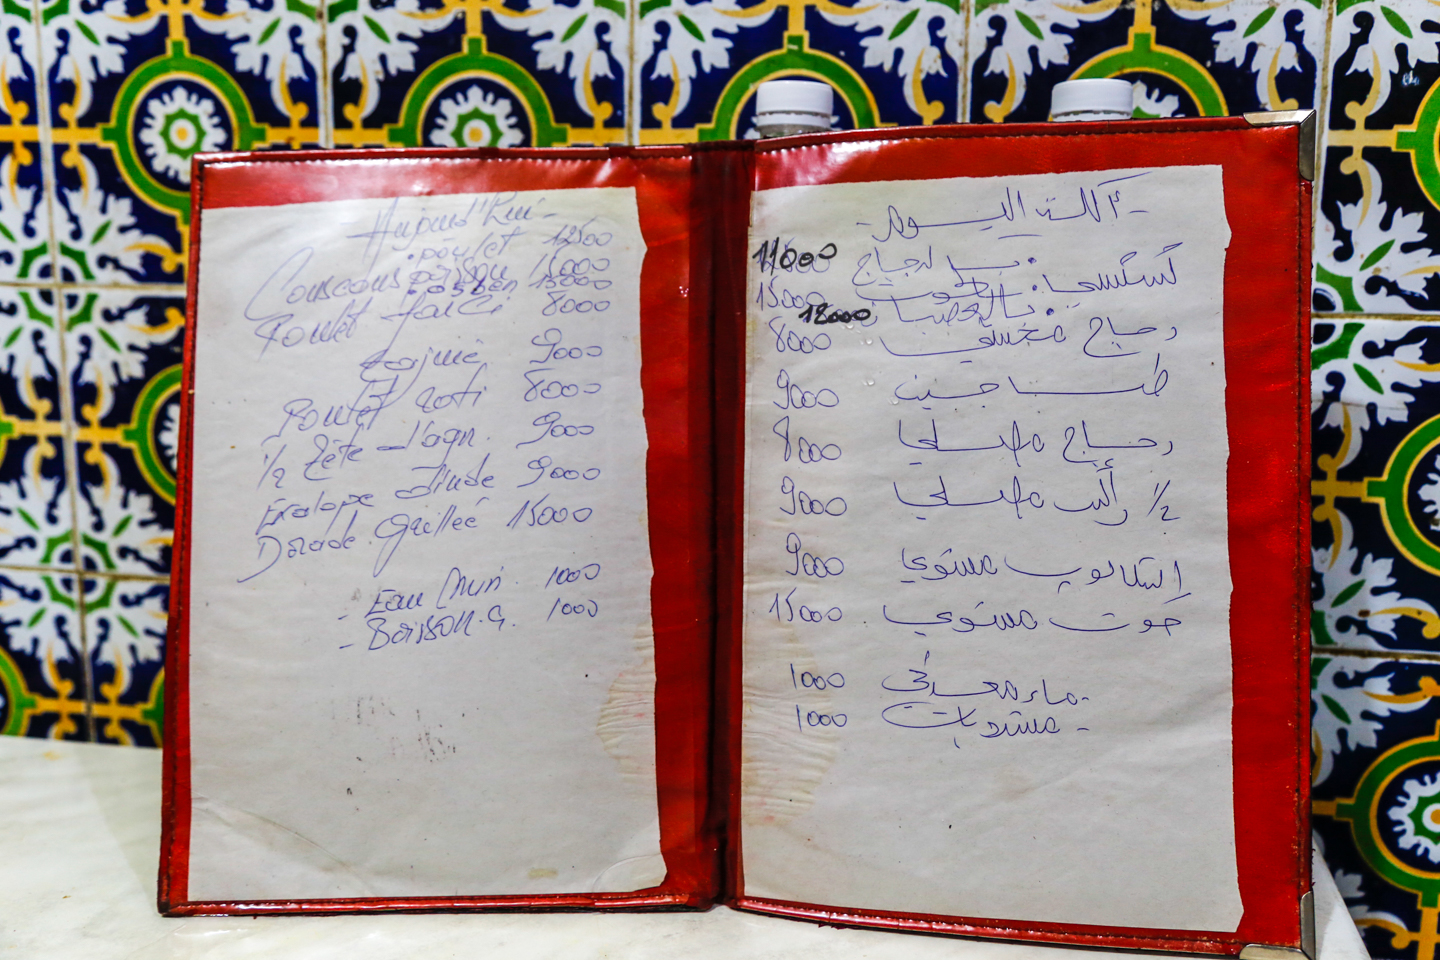 Aujourd'hui -
. poulet 12500
Couscous . poisson 15000
. osben 13000
Poulet farci 8000
Tajine 9000
Poulet roti 8000
1/2 Tête d'agn. 9000
Escalope Dinde 9000
Dorade Grillée 15000
- Eau Min 1000
- Boisson. G. 1000
- أكلت اليوم -
. بالدجاج 11000
كسكسي . بالحوت 15000
. بالعصبان 12000
دجاج محشي 8000
طاجين 9000
دجاج مصلي 8000
1/2 رأس مصلي 9000
إسكالوب مشوي 9000
حوت مشوي 15000
- ماء معدني 1000
- مشروبات 1000